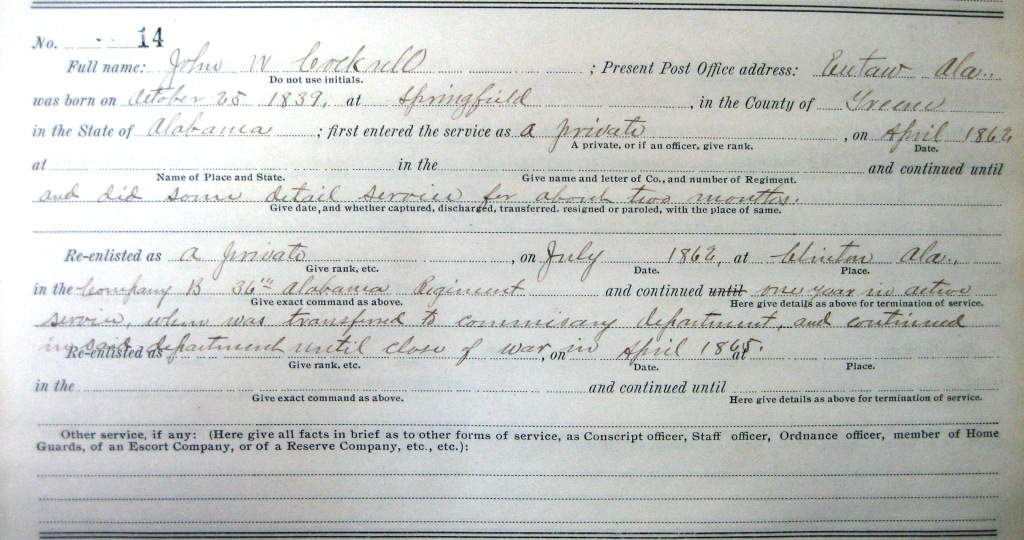 No. 14
Full name: John W Cockrell ; Present Post Office address: Eutaw Ala.
Do not use initials.
was born on October 25 1839, at Springfield , in the County of Greene
in the State of Alabama ; first entered the service as a private , on April 1862
A private, or if an officer, give rank. Date.
at in the and continued until
Name of Place and State. Give name and letter of Co., and number of Regiment.
and did some detail service for about two months.
Give date, and whether captured, discharged, transferred. resigned or paroled, with the place of same.
Re-enlisted as a private , on July 1862, at Clinton Ala.,
Give rank, etc. Date. Place.
in the Company B 36th Alabama Regiment and continued until one year in active
Give exact command as above. Here give details as above for termination of service.
service, when was transferred to commisary department, and continued
in said department until close of war, in April 1865.
Re-enlisted as , on at
Give rank, etc. Date. Place.
in the and continued until
Give exact command as above. Here give details as above for termination of service.
Other service, if any: (Here give all facts in brief as to other forms of service, as Conscript officer, Staff officer, Ordnance officer, member of Home
Guards, of an Escort Company, or of a Reserve Company, etc., etc.):